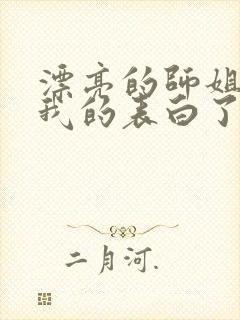 漂亮的师姐
我的表白了
二月河.